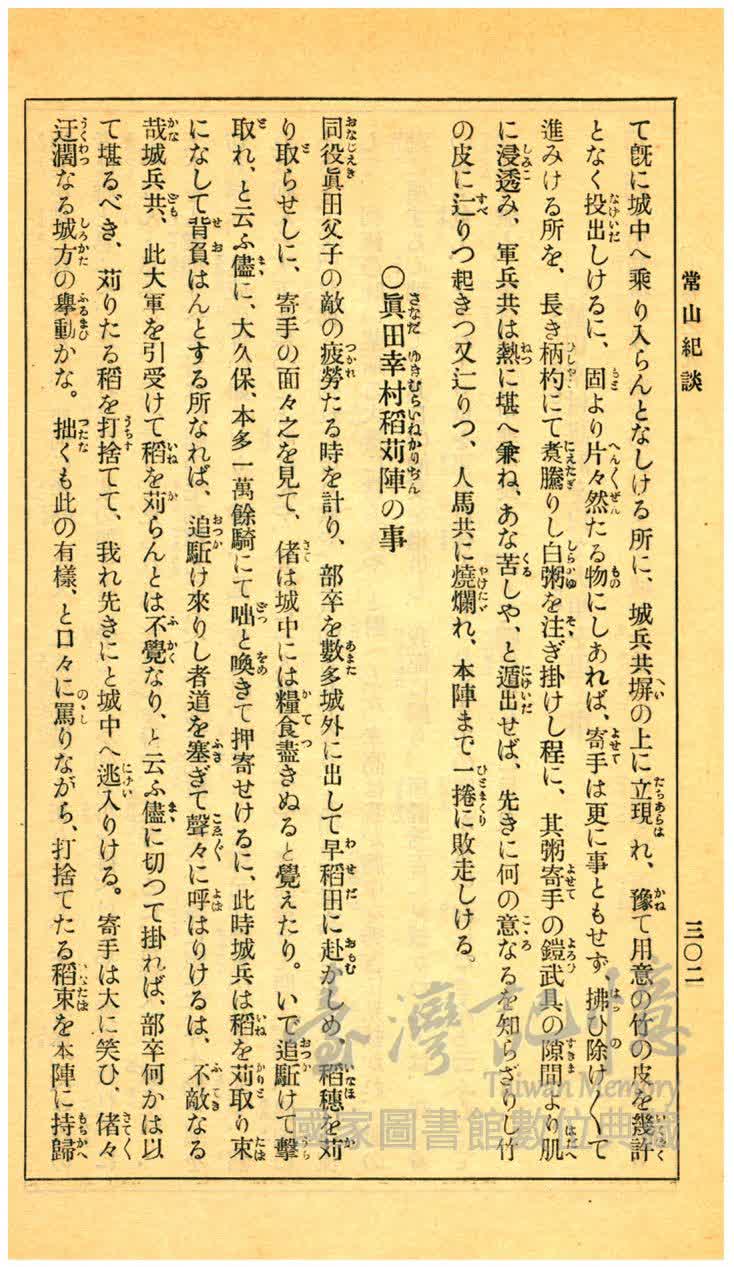 常山紀談
三〇二
て旣に城中へ乘り入らんとなしける所に、城兵共塀の上に立現れ、豫て用意の竹の皮を幾許
となく投出しけるに、固より片々然たる物にしあれば、寄手は更に事ともせず、拂ひ除け〱て
進みける所を、長き柄杓にて煮騰りし白粥を注ぎ掛けし程に、其粥寄手の鎧武具の隙間より肌
に浸透み、軍兵共は熱に堪へ兼ね、あな苦しや、と遁出せば、先きに何の意なるを知らざりし竹
の皮に辷りつ起きつ又辷りつ、人馬共に燒爛れ、本陣まで一捲に敗走しける。
〇眞田幸村稻苅陣の事
同役眞田父子の敵の疲勞たる時を計り、部卒を數多城外に出して早稻田に赴かしめ、稻穗を苅
り取らせしに、寄手の面々之を見て、偖は城中には糧食盡きぬると覺えたり。いで追駈けて擊
取れ、と云ふ儘に、大久保、本多一萬餘騎にて咄と喚きて押寄せけるに、此時城兵は稻を苅取り束
になして背負はんとする所なれば、追駈け來りし者道を塞ぎて聲々に呼はりけるは、不敵なる
哉城兵共、此大軍を引受けて稻を苅らんとは不覺なり、と云ふ儘に切つて掛れば、部卒何かは以
て堪るべき、苅りたる稻を打捨てて、我れ先きにと城中へ逃入りける。寄手は大に笑ひ、偖々
迂濶なる城方の擧動かな。拙くも此の有樣、と口々に罵りながら、打捨てたる稻束を本陣に持歸
臺灣記憶
Taiwan Memory
國家圖書館數位典藏